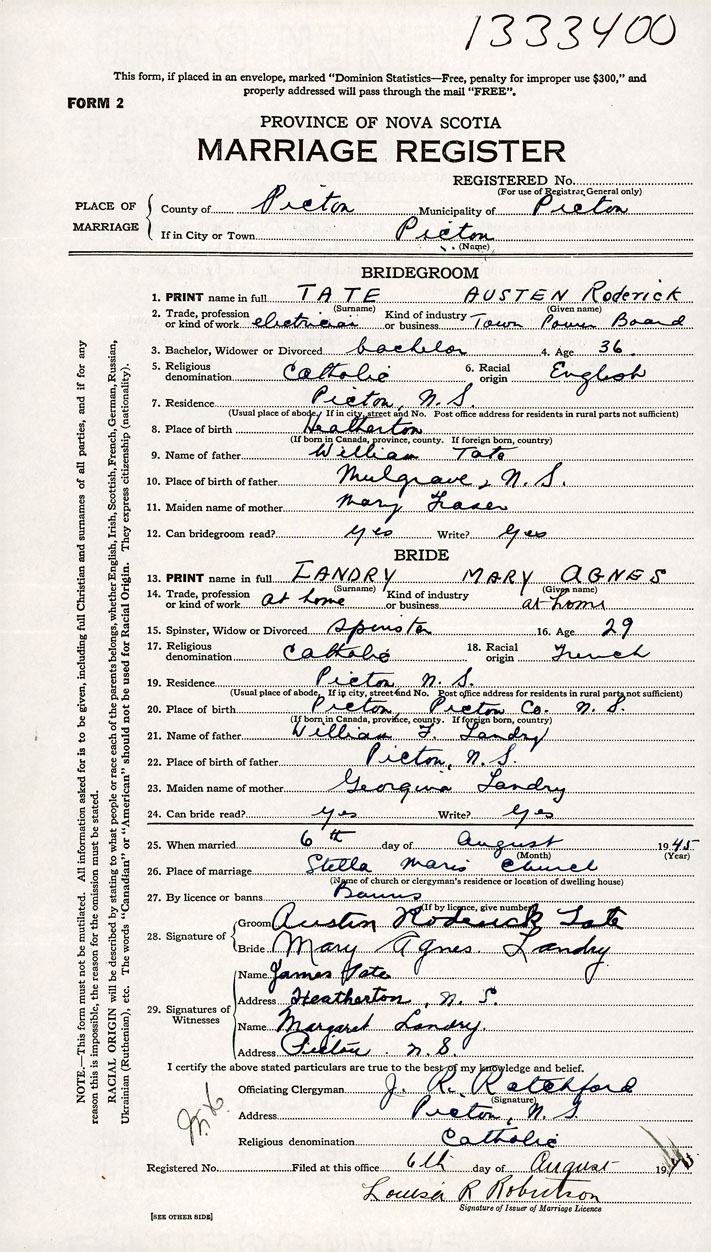 1333400
This form, if placed in an envelope, marked "Dominion Statistics—Free, penalty for improper use $300," and
properly addressed will pass through the mail "FREE".
FORM 2
PROVINCE OF NOVA SCOTIA
MARRIAGE REGISTER
REGISTERED No.
(For use of Registrar General only)
PLACE OF MARRIAGE
County of Picton Municipality of Picton
If in City or Town Picton
(Name)
BRIDEGROOM
1. PRINT name in full TATE AUSTEN Roderick
(Surname) (Given name)
2. Trade, profession or kind of work electrician Kind of industry or business Town Power Board
3. Bachelor, Widower or Divorced bachelor 4. Age 36
5. Religious denomination Catholic 6. Racial origin English
7. Residence Picton, N. S.
(Usual place of abode. If in city, street and No. Post office address for residents in rural parts not sufficient)
8. Place of birth Heatherton
(If born in Canada, province, county. If foreign born, country)
9. Name of father William Tate
10. Place of birth of father Mulgrave, N. S.
11. Maiden name of mother Mary Fraser
12. Can bridegroom read? yes Write? yes
BRIDE
13. PRINT name in full LANDRY MARY AGNES
(Surname) (Given name)
14. Trade, profession or kind of work at home Kind of industry or business at home
15. Spinster, Widow or Divorced spinster 16. Age 29
17. Religious denomination Catholic 18. Racial origin French
19. Residence Picton N. S.
(Usual place of abode, If in city, street and No. Post office address for residents in rural parts not sufficient)
20. Place of birth Picton, Picton Co. N. S.
(If born in Canada, province, county. If foreign born, country)
21. Name of father William F. Landry
22. Place of birth of father Picton, N. S.
23. Maiden name of mother Georgina Landry
24. Can bride read? yes Write? yes
25. When married 6th day of August 1945
(Month) (Year)
26. Place of marriage Stella Maris Church
(Name of church or clergyman's residence or location of dwelling house)
27. By licence or banns Banns
(If by licence, give number)
28. Signature of
Groom Austin Roderick Tate
Bride Mary Agnes Landry
29. Signatures of Witnesses
Name James Tate
Address Heatherton, N. S.
Name Margaret Landry.
Address Pictou. N. S.
I certify the above stated particulars are true to the best of my knowledge and belief.
Officiating Clergyman J. R. Ratchford
(Signature)
Address Picton, N. S.
Religious denomination Catholic
Registered No. Filed at this office 6th day of August 19
Louisa R Robertson
Signature of Issuer of Marriage Licence
[SEE OTHER SIDE]
NOTE.—This form must not be mutilated. All information asked for is to be given, including full Christian and surnames of all parties, and if for any
reason this is impossible, the reason for the omission must be stated.
RACIAL ORIGIN will be described by stating to what people or race each of the parents belongs, whether English, Irish, Scottish, French, German, Russian,
Ukrainian (Ruthenian), etc. The words "Canadian" or "American" should not be used for Racial Origin. They express citizenship (nationality).